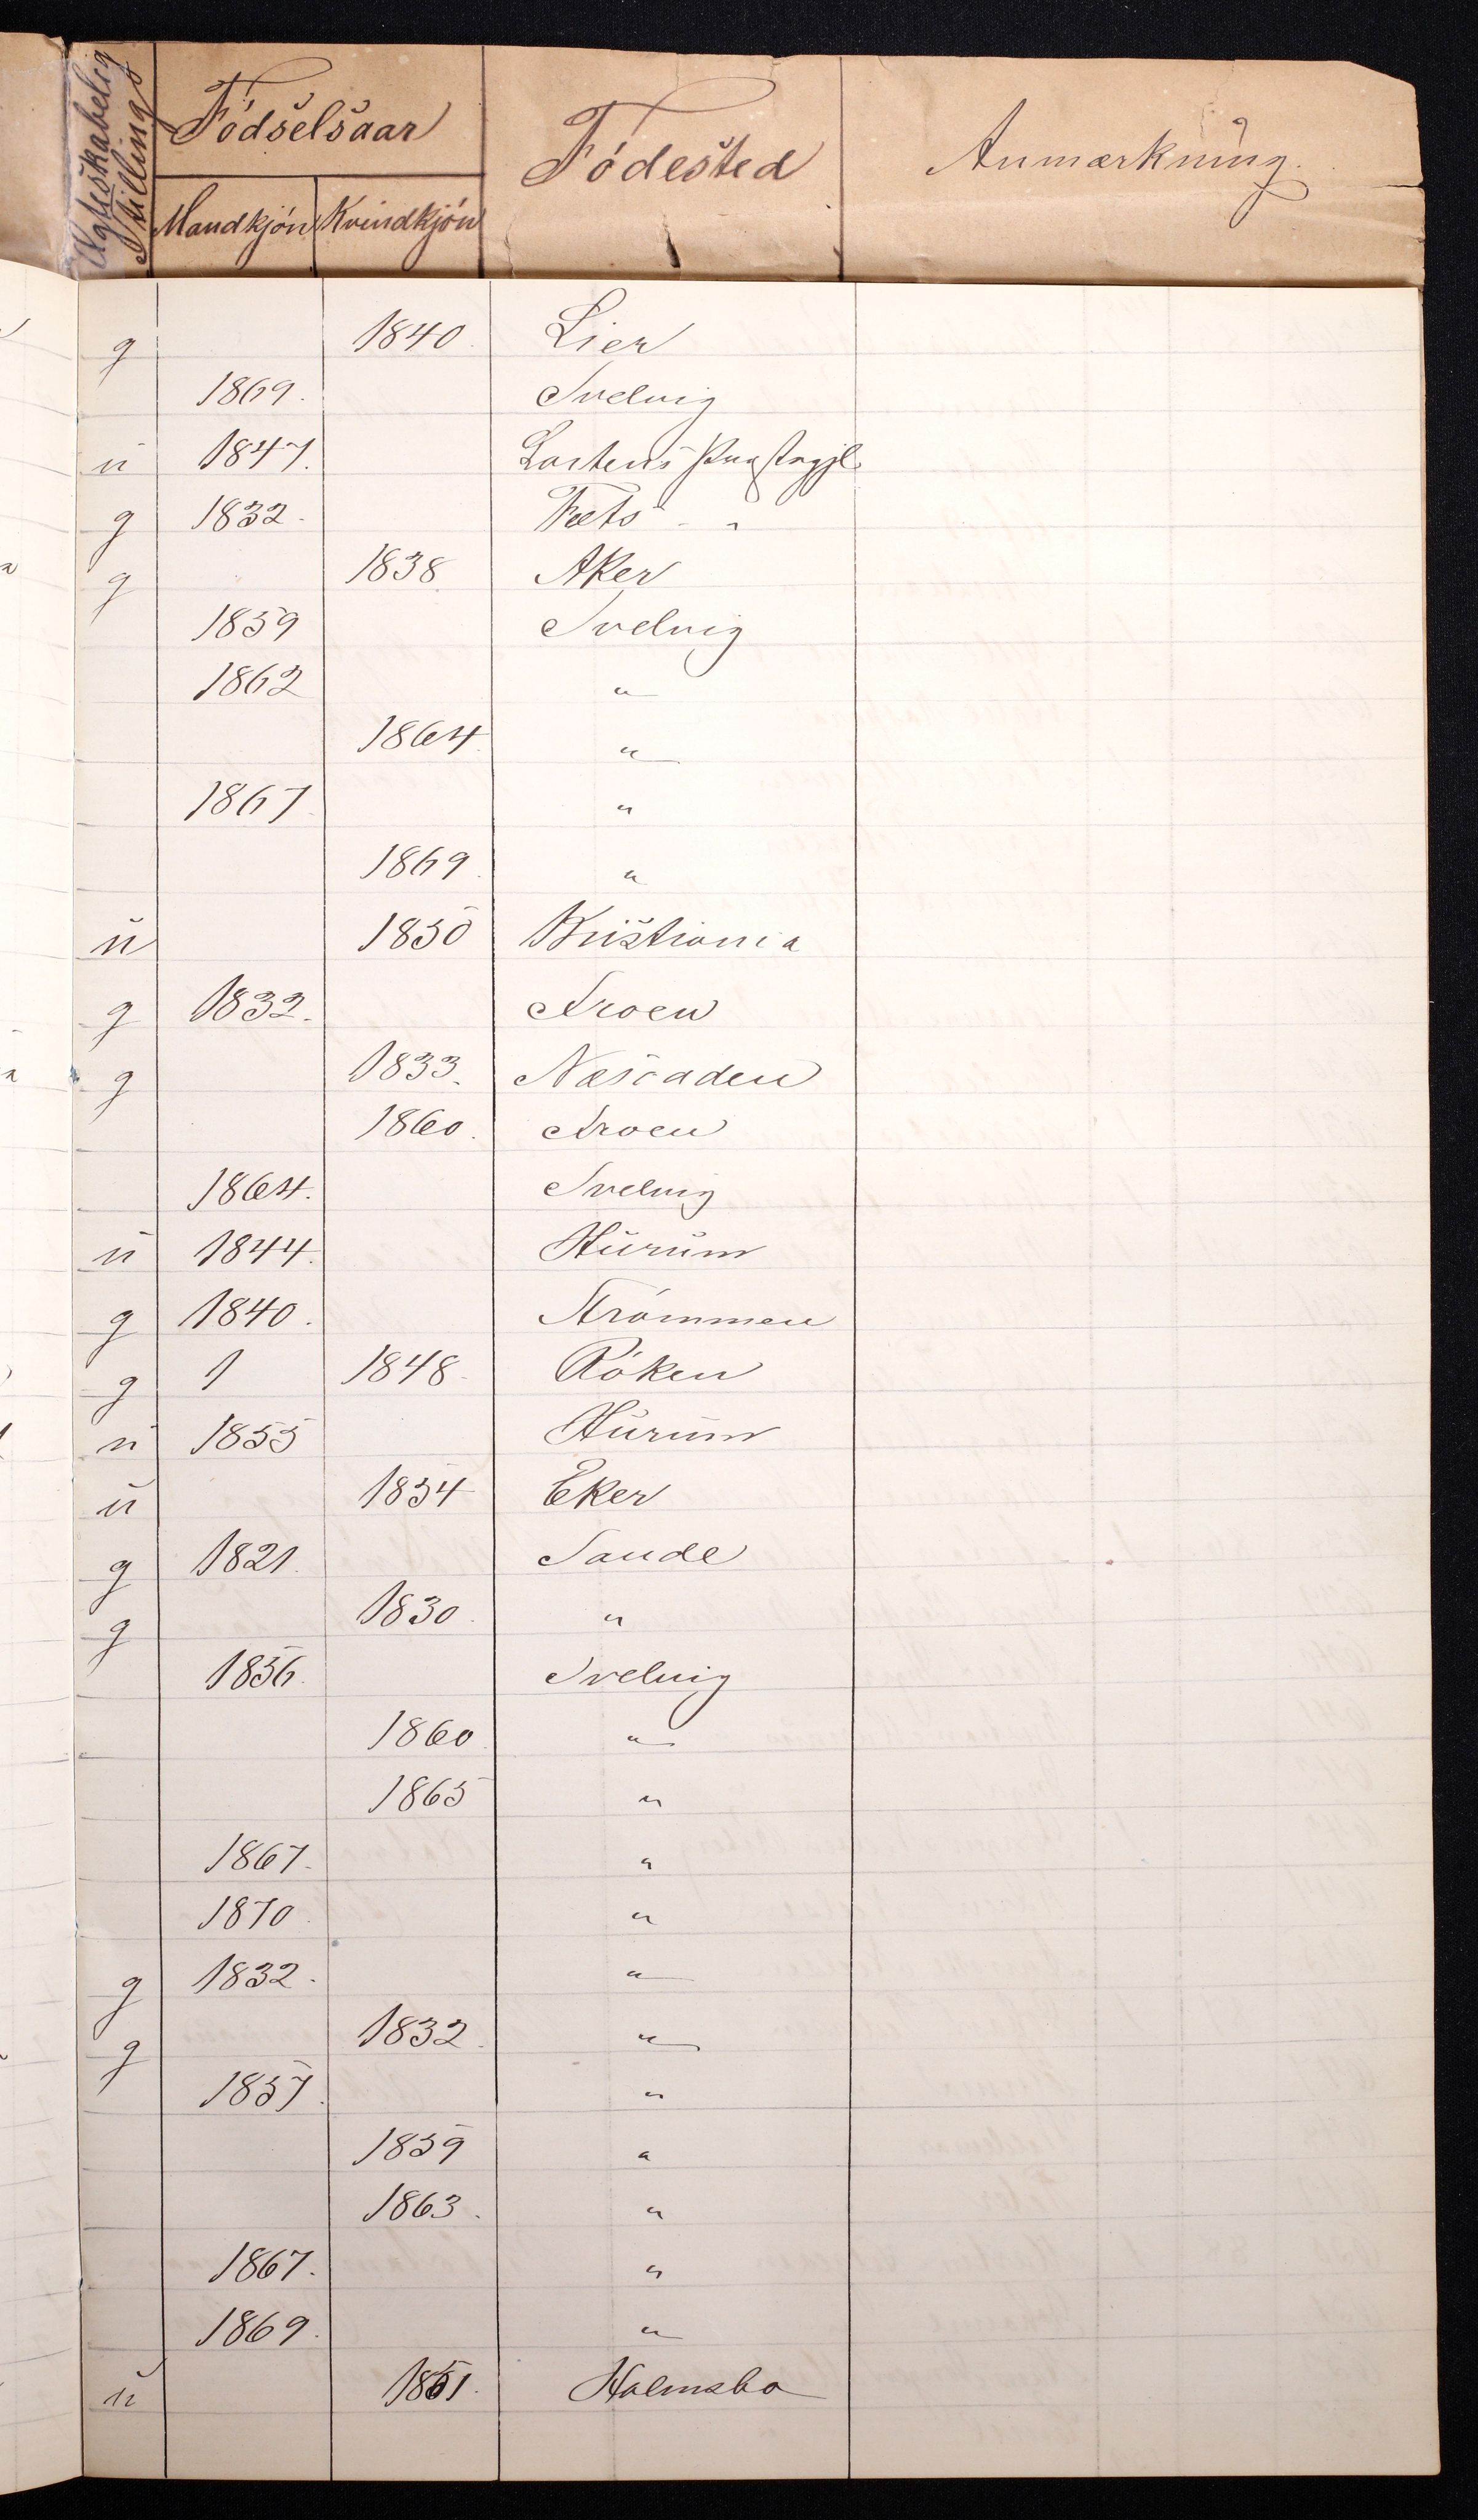 Ægteskabelig Stilling
Födselsaar
Mandkjón Kvindkjón
Fódested
Anmærkning.
g 1840. Lier
1869. Svelvig
ú 1847. Lartens
g 1832. Fets - "
g 1838 Aker
1859 Svelvig
1862 "
1864. "
1867. "
1869. "
ú 1850 Kristiania
g 1832. Aroen
g 1833. Næsodden
1860. Aroen
1864. Svelvig
ú 1844. Húrúm
g 1840. Strómmen
g 1 1848. Róken
ú 1855 Húrúm
ú 1854 Eker
g 1821. Sande
g 1830. "
1856. Svelvig
1860 "
1865 "
1867. "
1870. "
g 1832. "
g 1832. "
1857. "
1859 "
1863. "
1867. "
1869. "
ú 1851. Holmsbo